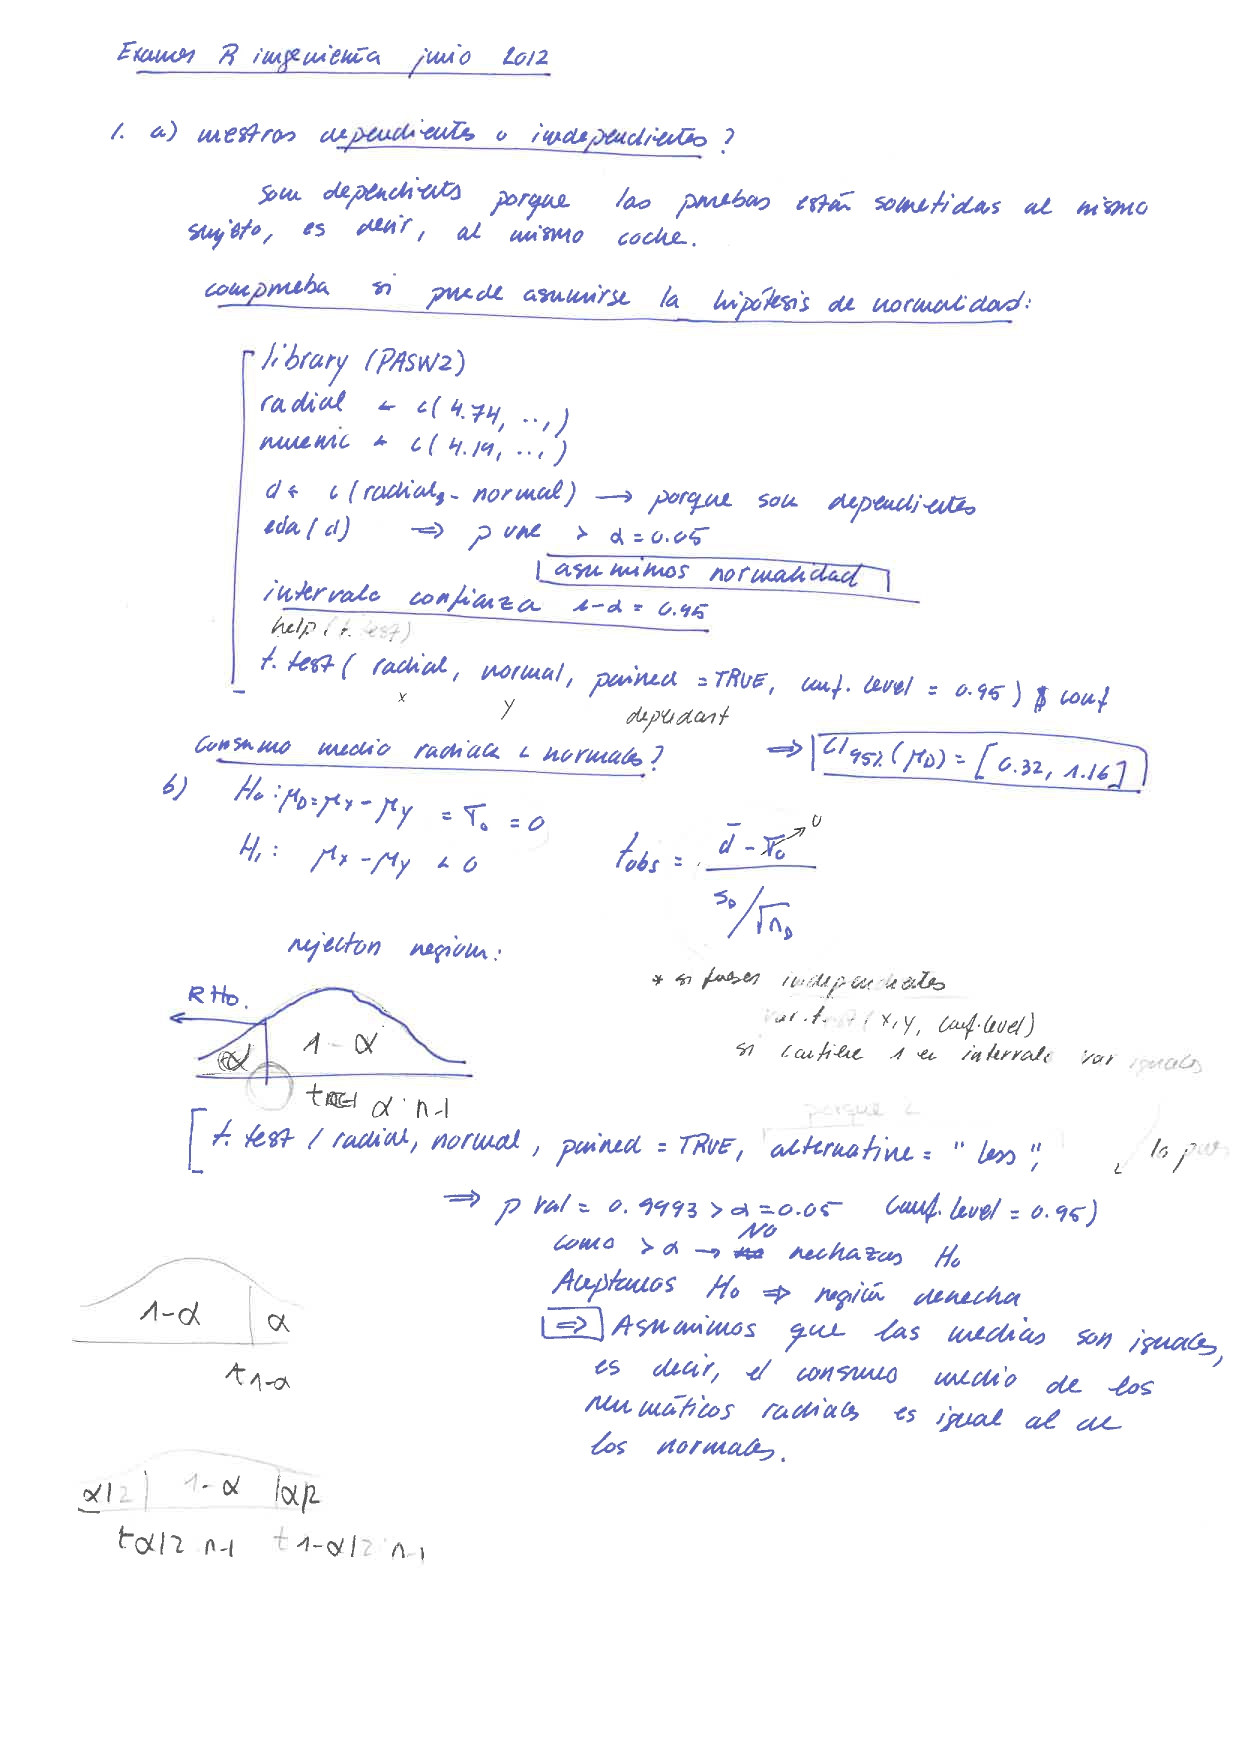 Examen R ingenieria junio 2012
1. a) muestras dependientes o independientes?
son dependients porque las pruebas están sometidas al mismo
sujeto, es decir, al mismo coche.
comprueba si puede asumirse la hipótesis de normalidad:
library (PASW2)
radial ← c( 4.74, ..,)
← c( 4.19, ...)
d ← c (radial - normal) → porque son dependientes
eda (d) ⇒ p val > α = 0.05
asumimos normalidad
intervalo confianza 1-α = 0.95
help (t. test)
t. test ( radial, normal, paired = TRUE, conf. level = 0.95) $ conf
x y dependant
consumo medio radiales < normales? ⇒ CI95% (μD) = [0.32, 1.16]
b) H0 : μD = μx - μy = T0 = 0
H1 : μx - μy < 0
tobs = d̄ - T0 → 0
sD / √nD
rejecton region:
* si fuesen independientes
RH0. var.test ( x, y, conf.level)
α 1 - α si contiene 1 en intervalo var iguales
t α n-1
porque
t. test ( radial, normal, paired = TRUE, alternative = "less",
⇒ p val = 0.9993 > α = 0.05 conf. level = 0.95)
como > α → NO rechazas H0
Aceptamos H0 ⇒ región derecha
1-α α
⇒ Asumimos que las medias son iguales,
t 1-α
es decir, el consumo medio de los
neumáticos radiales es igual al de
los normales.
α/2 1-α α/2
t α/2 n-1 t 1-α/2 n-1